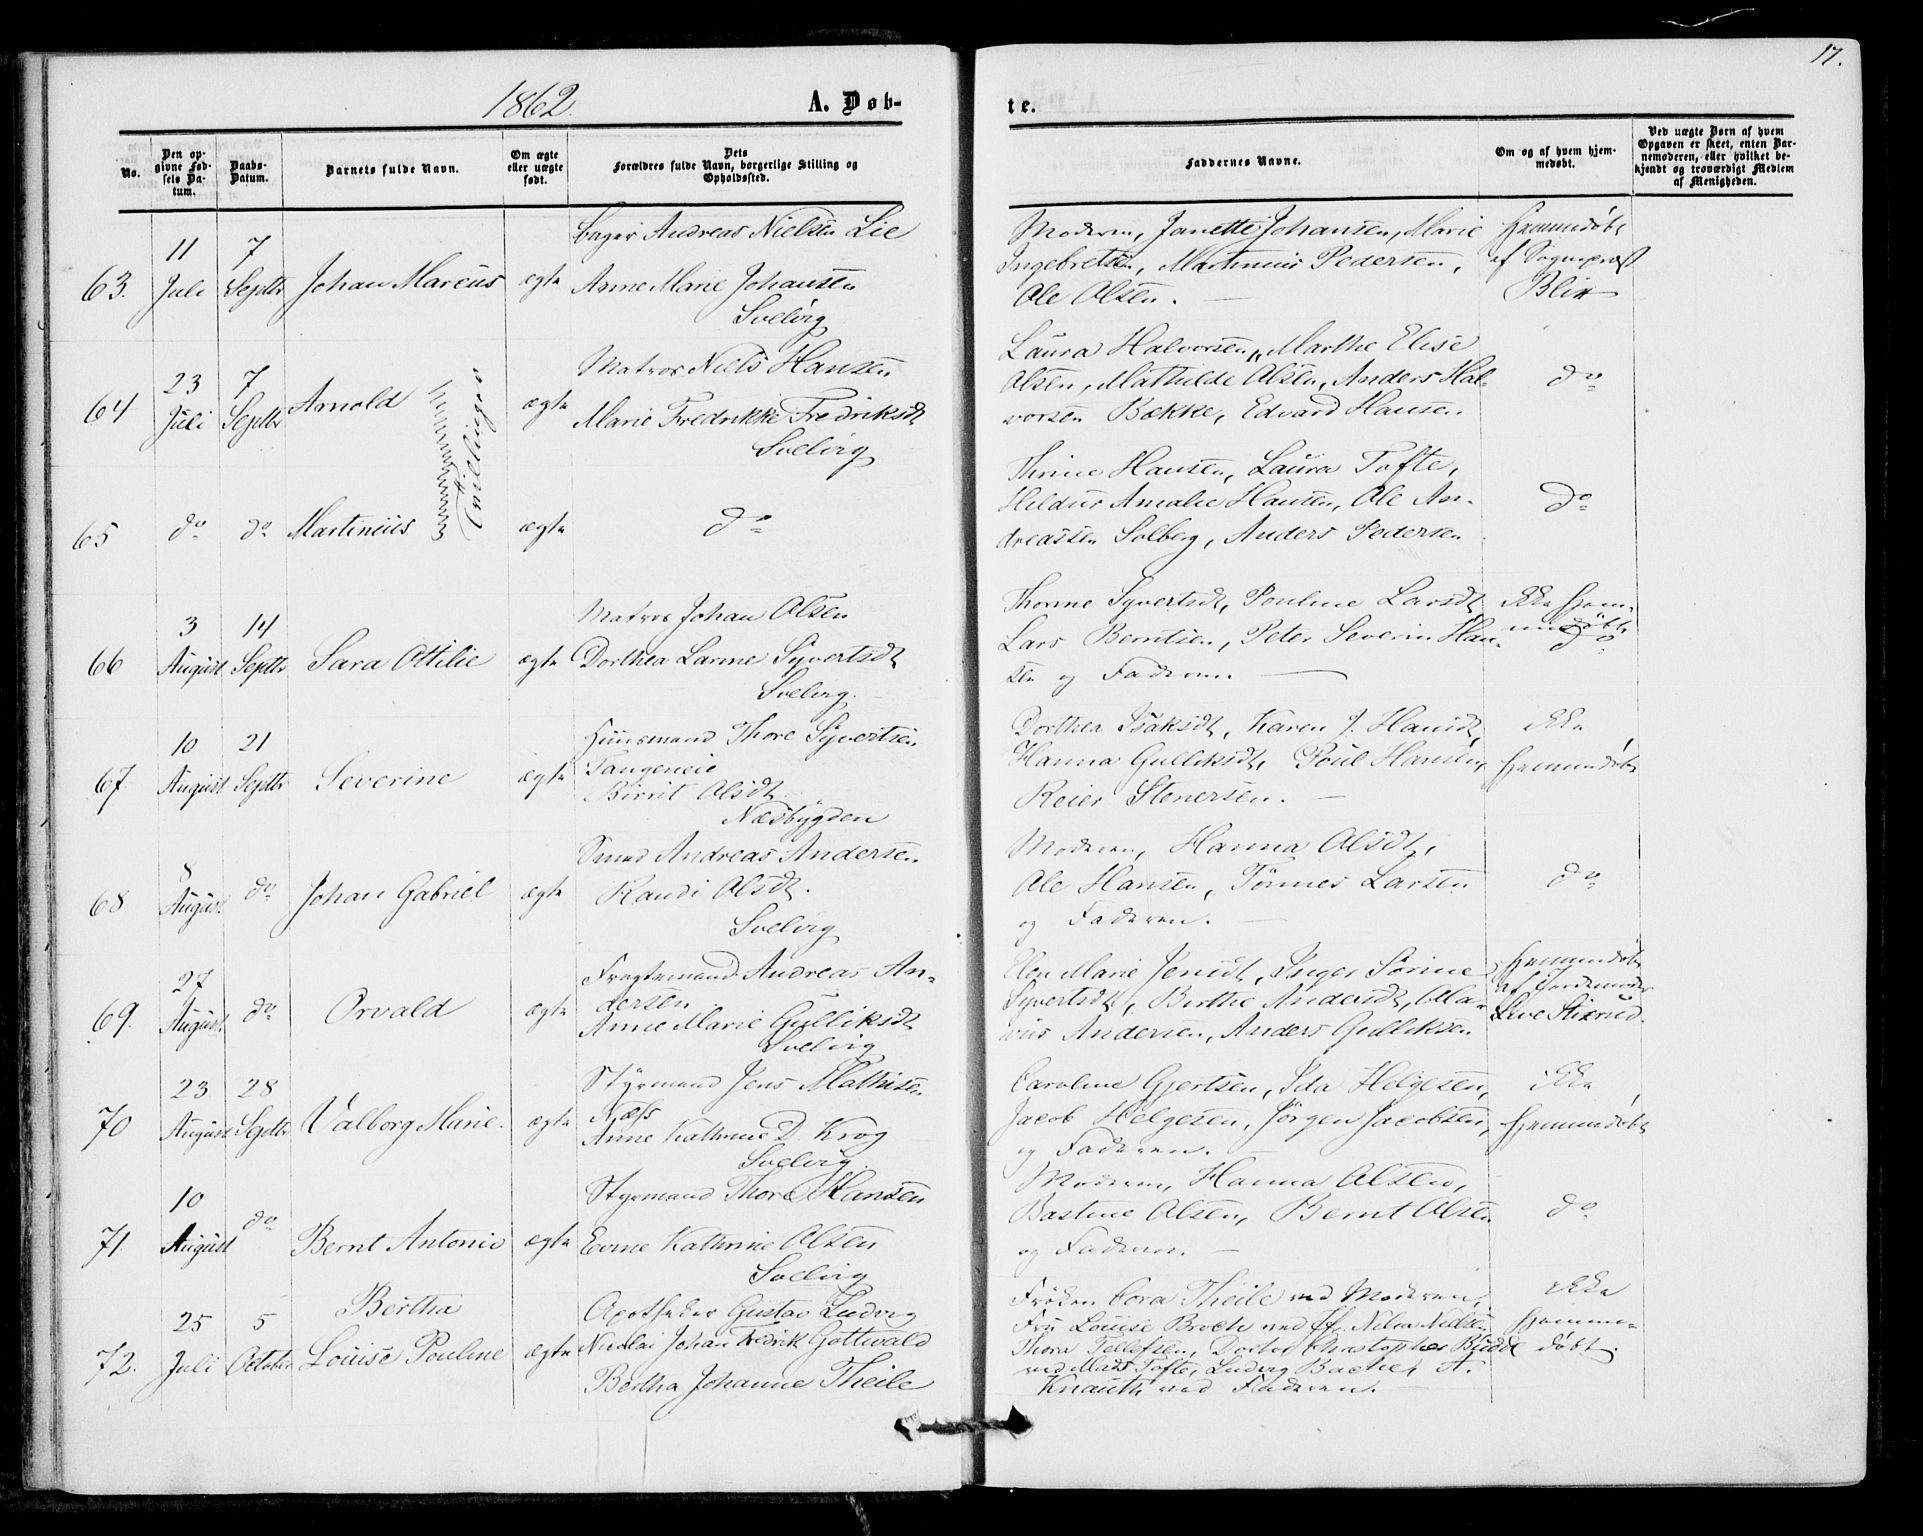 17.
1862.
A. Døb-
te.
No.
Den op-
givne Fød-
sels Da-
tum.
Daabs-
Datum.
Barnets fulde Navn.
Om ægte
eller uægte
født.
Dets
Forældres fulde Navn, borgerlige Stilling og
Opholdssted.
Faddernes Navne.
Om og af hvem hjem-
medøbt.
Ved uægte Børn af hvem
Opgaven er skeet, enten Bar-
nemoderen, eller hvilket be-
kjendt og troværdigt Medlem
af Menigheden.
63.
11
Juli
7
Septbr
Johan Marcus
ægte
Bager Andreas Nielsen Lie
Anne Marie Johansen
Svelvig
Moderen, Janette Johansen, Marie
Ingebretsen, Martinius Pedersen,
Ole Olsen.
Hjemmedøbt
af Sognepræst
Blix
64
23
Juli
7
Septbr
Arnold
Tvillinger
ægte
Matros Niels Hansen
Marie Fredrikke Fredriksdt
Svelvig
Laura Halvorsen, Marthe Elise
Olsen, Mathilde Olsen, Anders Hal-
vorsen Bække, Edvard Hansen.
do
65
do
do
Martinius
ægte
do
Thrine Hansen, Laura Tofte,
Amalie Hansen, Ole An-
dreassen Solberg, Anders Pedersen
do
66
3
August
14
Septbr
Sara Ottilie
ægte
Matros Johan Olsen
Dorthea Larine Syvertsdt
Svelvig.
Thorine Syvertsdt, Pouline Larsdt,
Lars Berntsen, Peter Severin Han-
sen og Faderen.
ikke Hjem-
medøbt
do
67.
10
August
21
Septbr
Severine
ægte
Huusmand Thore Syvertsen
Tangeneie
Birrit Olsdt.
Næsbygden
Dorthea Isaksdt, Karen J. Hansdt,
Hanna Gulliksdt, Poul Hansen,
Reier Stenersen.
ikke
Hjemmedøbt
68
8
August
do
Johan Gabriel
ægte
Smed Andreas Andersen
Randi Olsdt.
Svelvig
Moderen, Hanna Olsdt,
Ole Hansen, Tønnes Larsen
og Faderen.
do
69.
27
August
do
Orvald
ægte
Fragtemand Andreas An-
dersen
Anne Marie Gulliksdt
Svelvig
Elen Marie Jensdt, Inger Sørine
Syvertsdt, Berthe Andersdt, Ola-
vus Andersen, Anders Gulliksen
Hjemmedøbt
af Jordemoder
Live Stixrud.
70
23
August
28
Septbr
Valborg Marie.
ægte
Styrmand Jens Mathisen
Næss
Anne Kathrine D. Krog
Svelvig.
Caroline Gjertsen, Ida Helgesen,
Jacob Helgesen, Jørgen Jacobsen,
og Faderen.
ikke
Hjemmedøbt
71
10
August
do
Bernt Antonio
ægte
Styrmand Thore Hansen
Evine Kathrine Olsen
Svelvig
Moderen, Hanna Olsen,
Bastine Olsen, Bernt Olsen
og Faderen.
do
72.
25
Juli
5
October
Bertha
Louise Pouline
ægte
Apotheker Gustav Ludvig
Nicolai Johan Fredrik Gottwald
Bertha Johanne Theile
Frøken Cora Theile ved Moderen,
Fru Louise Broch ved Nielsen
Thora Tellefsen, Doctor Christopher Budde
ved Mads Tofte, Ludvig Backer, A.
Knauth ved Faderen.
ikke
Hjemme-
døbt.